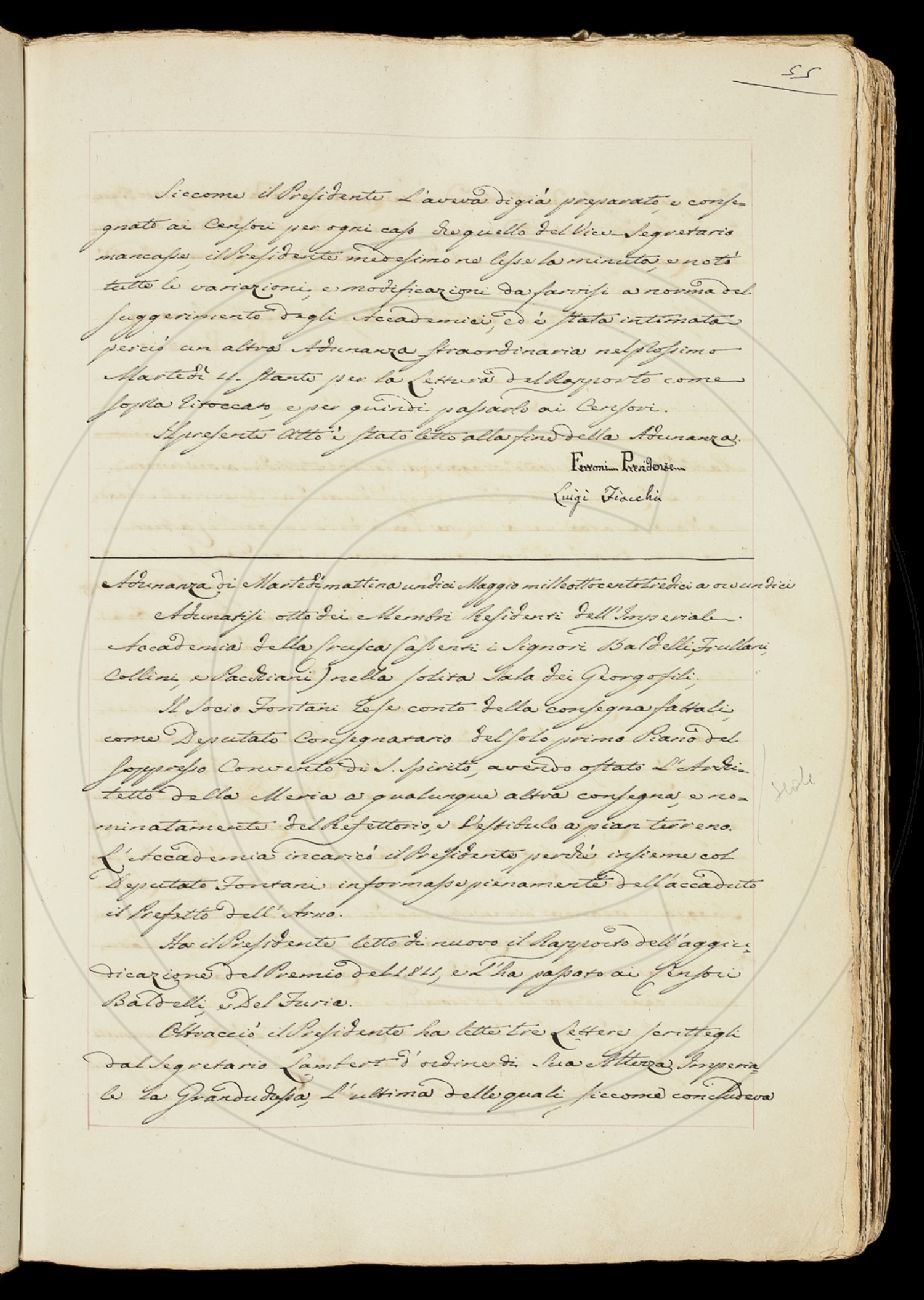 55
Siccome il Presidente l'aveva digià preparato, e conse-
gnato ai Censori per ogni caso che quello del Vice Segretario
mancasse, il Presidente medesimo ne lesse la minuta, e notò
tutte le variazioni, e modificazioni da farvisi a norma del
suggerimento degli Accademici, ed è stata intimata
perciò un altra Adunanza straordinaria nel prossimo
Martedì 11. stante per la Lettura del Rapporto come
sopra ritoccato, e per quindi passarlo ai Censori.
Il presente Atto è stato letto alla fine della Adunanza.
Ferroni Presidente
Luigi Fiacchi
Adunanza di Martedì mattina undici Maggio milleottocentotredici a ore undici
Adunatisi otto dei Membri Residenti dell'Imperiale
Accademia della Crusca (assenti i Signori Baldelli, Frullani,
Collini, e Pacchiani) nella solita Sala dei Georgofili,
Il Socio Fontani rese conto della consegna fattali,
come Deputato Consegnatario del solo primo Piano del
soppresso Convento di S. Spirito, avendo ostato l'Archi-
tetto della Meria a qualunque altra consegna, e no-
minatamente del Refettorio, e Vestibulo a pian terreno.
L'Accademia incaricò il Presidente perchè insieme col
Deputato Fontani informasse pienamente dell'accaduto
il Prefetto dell'Arno.
Ha il Presidente letto di nuovo il Rapporto dell'aggiu-
dicazione del Premio del 1811, e l'ha passato ai Censori
Baldelli, e Del Furia.
Oltracciò il Presidente ha lette tre Lettere scrittegli
dal Segretario Lambert d'ordine di Sua Altezza Imperia-
le la Granduchessa, l'ultima delle quali, siccome concludeva